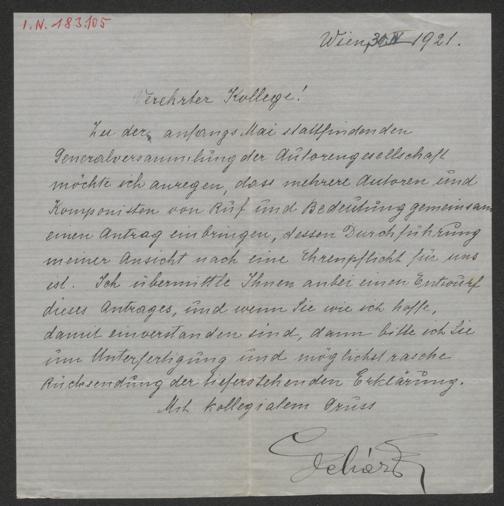 I.N. 183.105
Wien, 30 IV 1921.
Verehrter Kollege!
Zu der anfangs Mai stattfindenden
Generalversammlung der Autorengesellschaft
möchte ich anregen, dass mehrere Autoren und
Komponisten von Ruf und Bedeutung gemeinsam
einen Antrag einbringen, dessen Durchführung
meiner Ansicht nach eine Ehrenpflicht für uns
ist. Ich übermittle Ihnen anbei einen Entwurf
dieses Antrages, und wenn Sie wie ich hoffe,
damit einverstanden sind, dann bitte ich Sie
um Unterfertigung und möglichst rasche
Rücksendung der tieferstehenden Erklärung.
Mit kollegialem Gruss
Lehár